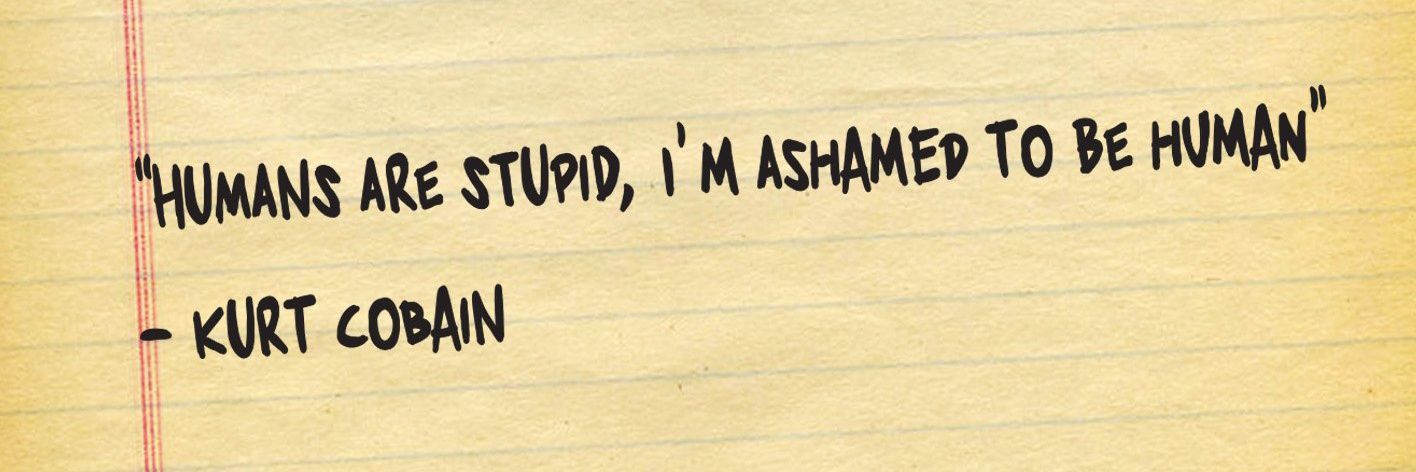 "HUMANS ARE STUPID, I'M ASHAMED TO BE HUMAN"
- KURT COBAIN